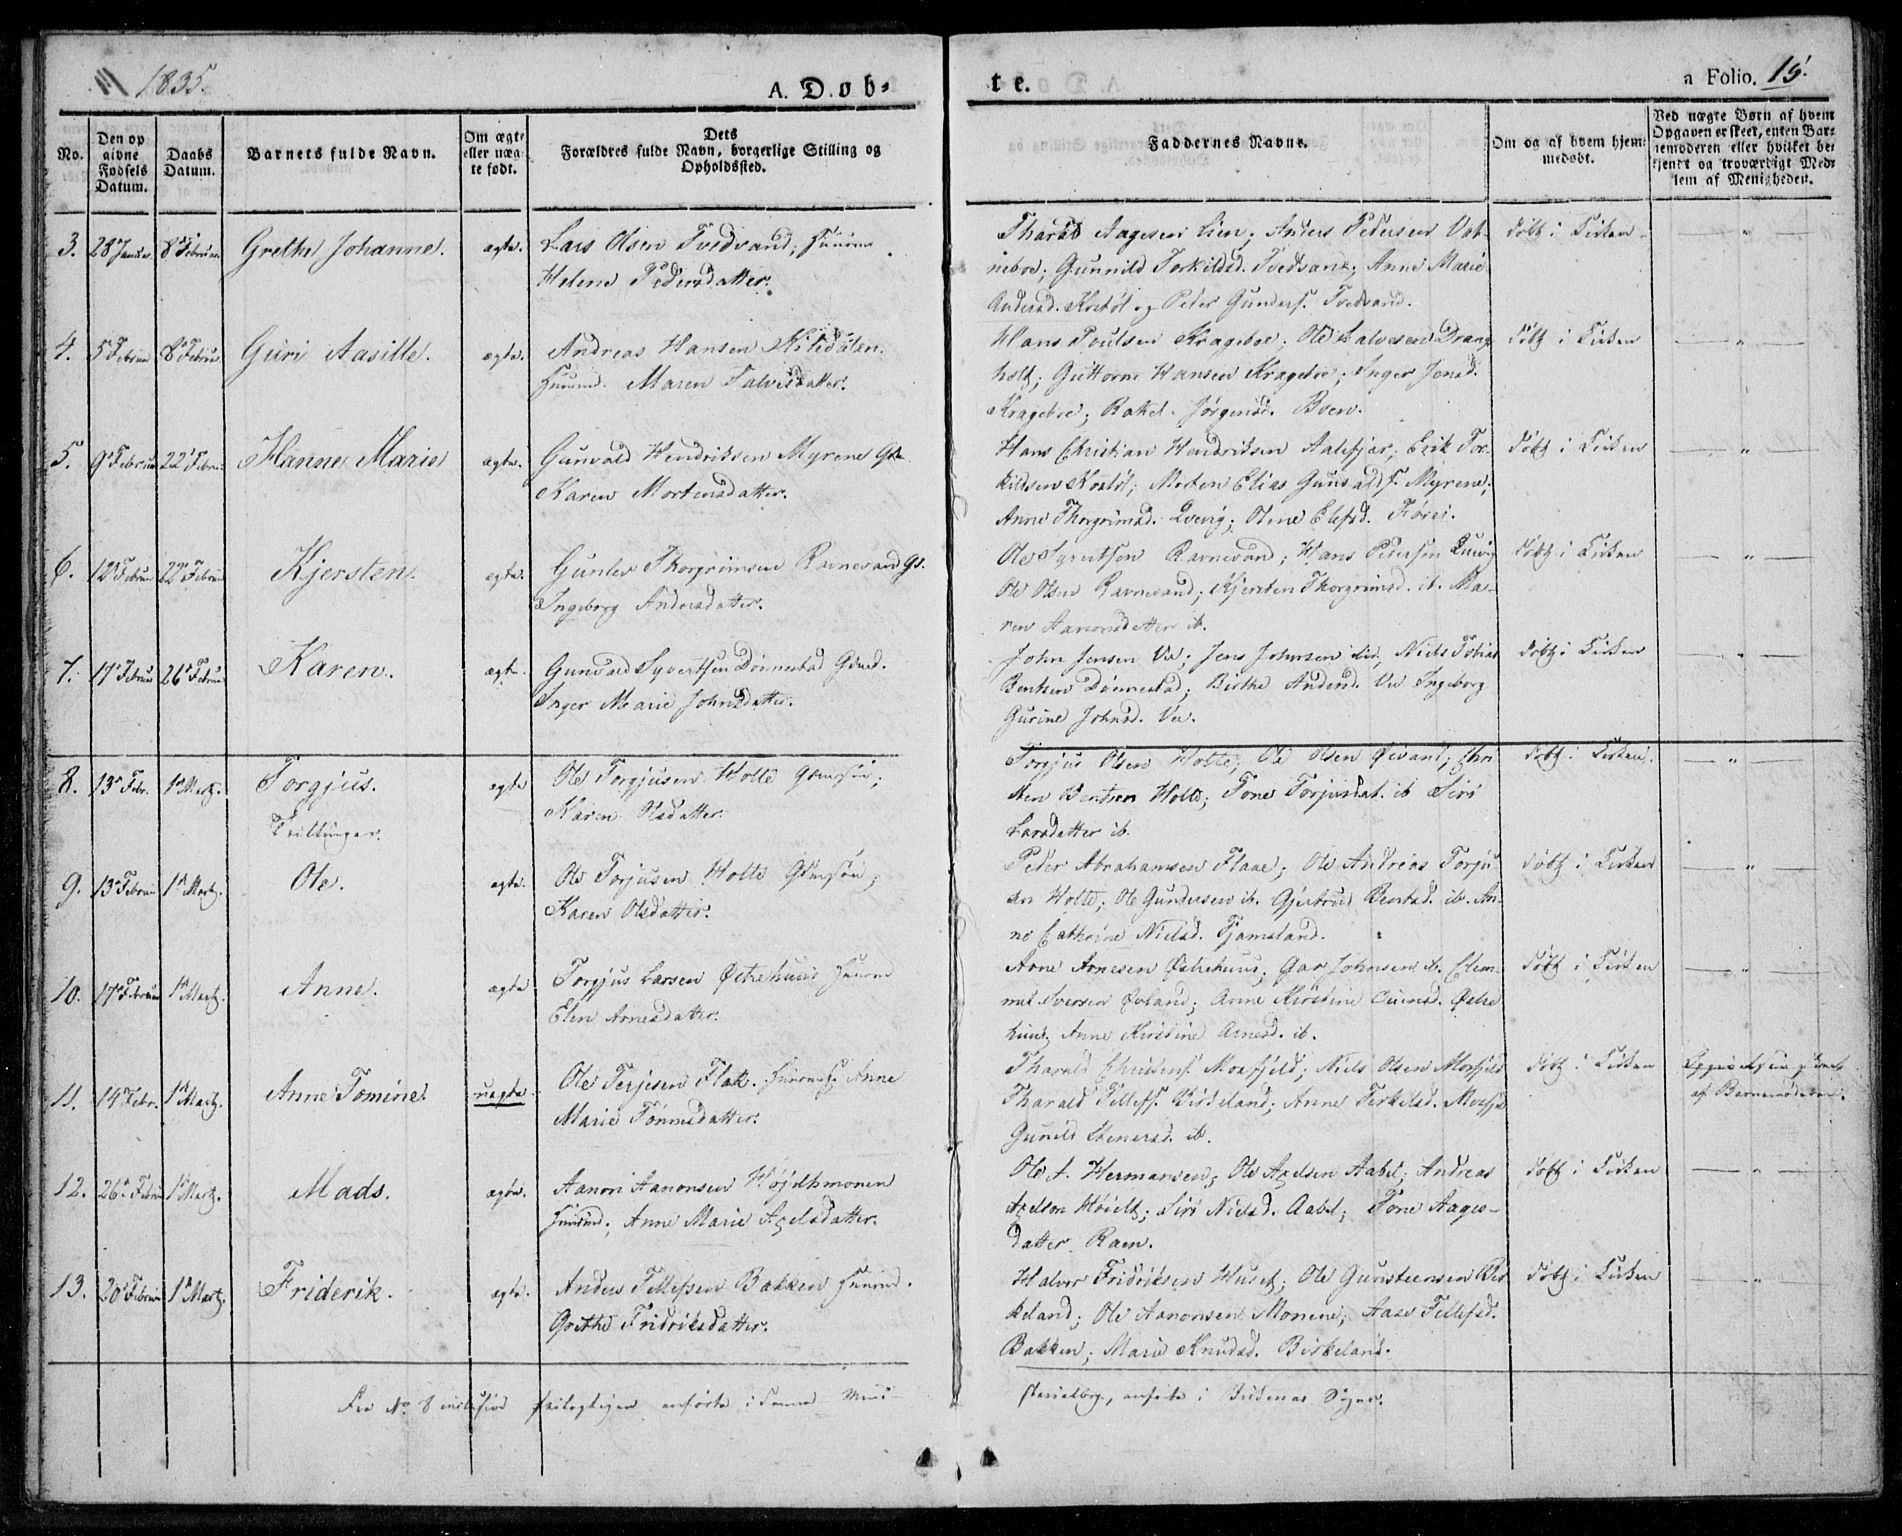 1835.
A. Døb-
te.
a Folio. 15.
No.
Den op
givne
Fødsels
Datum.
Daabs
Datum.
Barnets fulde Navn.
Om ægte
eller uæg-
te født.
Dets
Forældres fulde Navn, borgerlige Stilling og
Opholdssted.
Faddernes Navne.
Om og af hvem hjem-
medøbt.
Ved uægte Børn af hvem
Opgaven er skeet, enten Bar-
nemoderen eller hvilket be-
kjendt og troværdigt Med-
lem af Menigheden.
3. 28 Januar. 8 Februar. Grethe Johanne. ægte. Lars Olsen Tvedvand;
Helene Pedersdatter.
Tharald Aagesen Lien; Anders Pedersen Vat-
neboe; Gunnild Torkildsd. Tvedvand; Anne Marie
Andersd. og Peder Gunders. Tvedvand.
døbt i Kirken
4. 5 Februar 8 Februar Guri Aasille. ægte. Andreas Hansen
Maren Talvesdatter.
Hans Poulsen Krageboe; Ole Salvesen Drang-
holt; Guttorm Hansen Krageboe; Inger Jensd.
Krageboe; Rakel Jørgensd. Boen.
døbt i Kirken
5. 9 Februar 22 Febru Hanne Marie ægte. Gunvald Hendriksen Myrene
Karen Mortensdatter.
Hans Christian Hendriksen Aalefjær; Erik Tor-
kildsen; Morten Elias Gunvalds. Myrene;
Anne Thorgrimsd. Qvevig; Oline Elefsd.
døbt i Kirken
6. 12 Februar 22 Februar Kjersten. ægte. Gunlev Thorgrimsen Ravnevand Gs.
Ingeborg Andersdatter.
Ole Syvertsen Ravnevand; Hans Pedersen
Ole Olsen Ravnevand; Kjersten Thorgrimsd. ib. Ma-
ren Aanonsdatter ib.
døbt i Kirken
7. 17 Februar 26 Februar Karen. ægte. Gunvald Syvertsen Dønnestad
Inger Marie Johnsdatter.
John Jensen Vee; Jens Johnsen ib; Niels Tobias
Bentsen Dønnestad; Birthe Andersd. Vee Ingeborg
Gurine Johnsd. Vee.
døbt i Kirken
8. 13 Febr. 1 Martz. Torgjus.
Tvillinger.
ægte Ole Torgjusen Holte;
Karen Olsdatter.
Torgjus Olsen Holte; Ole Olsen; Chri-
sten Bentsen Holte; Tone Torjusdat. ib Siri
Larsdatter ib.
døbt i Kirken.
9. 13 Februar 1 Martz. Ole. ægte. Ole Torjusen Holte;
Karen Olsdatter.
Peder Abrahamsen Flaae; Ole Andreas Torju-
sen Holte; Ole Gundersen ib. Gjertrud Bentsd. ib. An-
ne Cathrine Nielsd. Tjamsland.
døbt i Kirken
10. 17 Februar 1 Martz. Anne. ægte Torgjus Larsen Østrehuus
Elen Arnesdatter.
Arne Arnesen Østrehuus; Johnsen ib. Clem-
met Iversen; Anne Kirstine Østre
huus; Anne Kirstine Arnesd. ib.
døbt i Kirken
11. 14 Febr. 1 Martz. Anne Tomine. uægte. Ole Terjesen Flak. Anne
Marie Tønnesdatter.
Tharald Christens. Mosfjeld; Niels Olsen Mosfjeld
Tharald Tellefs. Birkeland; Anne Terkelsd. Mosfj.
Gunild Stenersd. ib.
døbt i Kirken
af Barnemoderen.
12. 26 Febru 1 Martz. Mads. ægte. Aanon Aanonsen
Anne Marie Axelsdatter.
Ole A. Hermansen; Ole Axelsen Aabel; Andreas
Axelsen; Siri Nielsd. Aabel; Tone Aages-
datter Raen.
døbt i Kirken
13. 20 Februar 1 Martz. Friderik. ægte. Anders Tellefsen Bakken
Grethe Fridriksdatter.
Halvor Fridriksen Huset; Ole Gunsteensen Bir-
keland; Ole Aanonsen Monene; Aase Tellefsd.
Bakken; Marie Knudsd. Birkeland.
døbt i Kirken
Fra No 8 inclusive anførte i denne Mini-
sterialbog, anførte i Sogn.